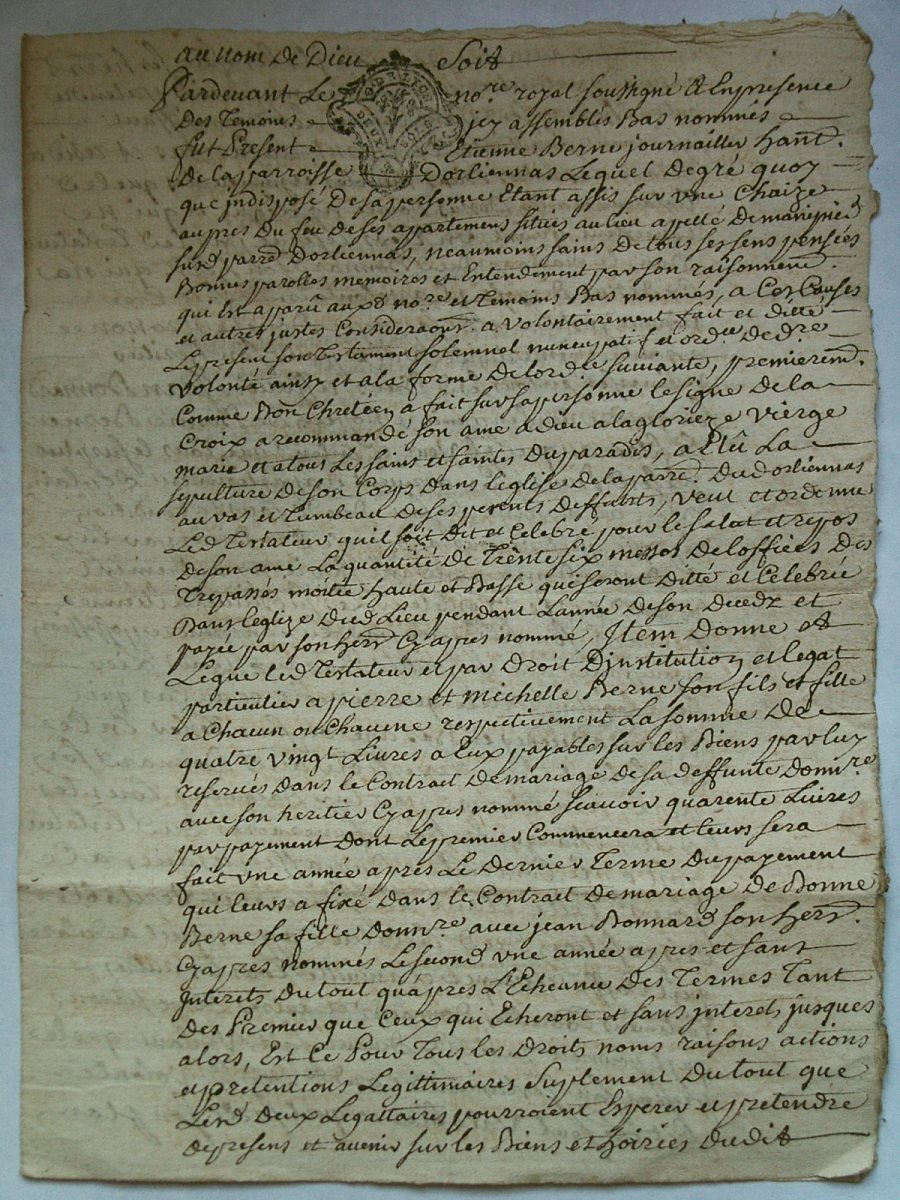 au nom de Dieu Soit
Pardevant Le no.re royal soussigné & En presence
Des Temoins jcy assemblés Bas nommés
fut Present Etienne Berne journailler hant.
De la parroisse Dorliennas Lequel De gré quoy
que jndisposé De sa personne Etant assis sur une Chaize
aupres Du feu de ses apartemens situés au lieu apellé De
susd parr.e Dorliennas, neaumoins sains de tous ses sens pensées
Bonnes parolles memoires et Entendement par son raisonnem.t
qui Est aparû auxd no.re et Temoins Bas nommés, a Ces Causes
et autres justes Consideraons. a volontairement fait et ditté
Le present son Testament solemnel nuncupatif et ord.ce De d.re
volonté ainsy et a la forme De Lord.ce suivante, premierem.t
Comme Bon Chretéen a fait sur sa personne le signe de la
Croix a recommandé son ame a Dieu a la glorieze vierge
marie et a tous Les saints et saintes Du paradis, a Elû La
sepulture De son Corps Dans leglise De la parr.e Du Dorliennas
au vas et Tumbeau De ses parents Deffunts, veut et ordenne
Led Testateur qu'il soit Dit et Celebré pour le salut et repos
De son ame La quantité de Trente six messes De Loffices Des
Trepassés moitié haute et Basse que seront Ditté et Celebrée
Dans leglize Dud Lieu pendant L'année De son Decedz et
payée par son her.r Cy apres nommé, Jtem Donne et
Legue led Testateur et par Droit Djnstitution et legat
particulier a pierre et michelle Berne son fils et fille
a Chacun ou Chacune respectivement La somme De
quatre vingt Livres a Eux payables sur les Biens par luy
reservés Dans le Contrat De mariage de sa deffunte Donn.re
avec son heritier Cy apres nommé scavoir quarente Livres
par payement dont Le premier Commencera et leurs sera
fait une année apres Le Dernier Terme Du payement
qui leurs a fixé Dans le Contrat De mariage De Bonne
Berne sa fille Donn.re avec jean Bonnard son her.r
Cy apres nommés Le second une année apres et sant
Jnterets Du tout qu'apres L'Echeance Des Termes Tant
Des Premier que Ceux qui Echeront et sans jnterets jusques
alors, Est Ce Pour Tous les Droits noms raisons actions
et pretentions Legittimaires Suplement Du tout que
Lesd Deux Legattaires pourroient Esperer et pretendre
De present et avenir sur les Biens et hoiries Dudit